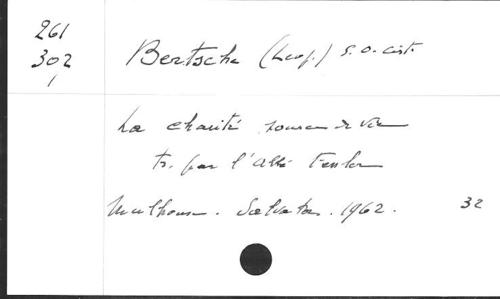 261
302
1
Bertsche (Leop.) S. O. Cist
La charité source de vie
tr. par l'Abbé
Mulhouse. Salvator. 1962. 32